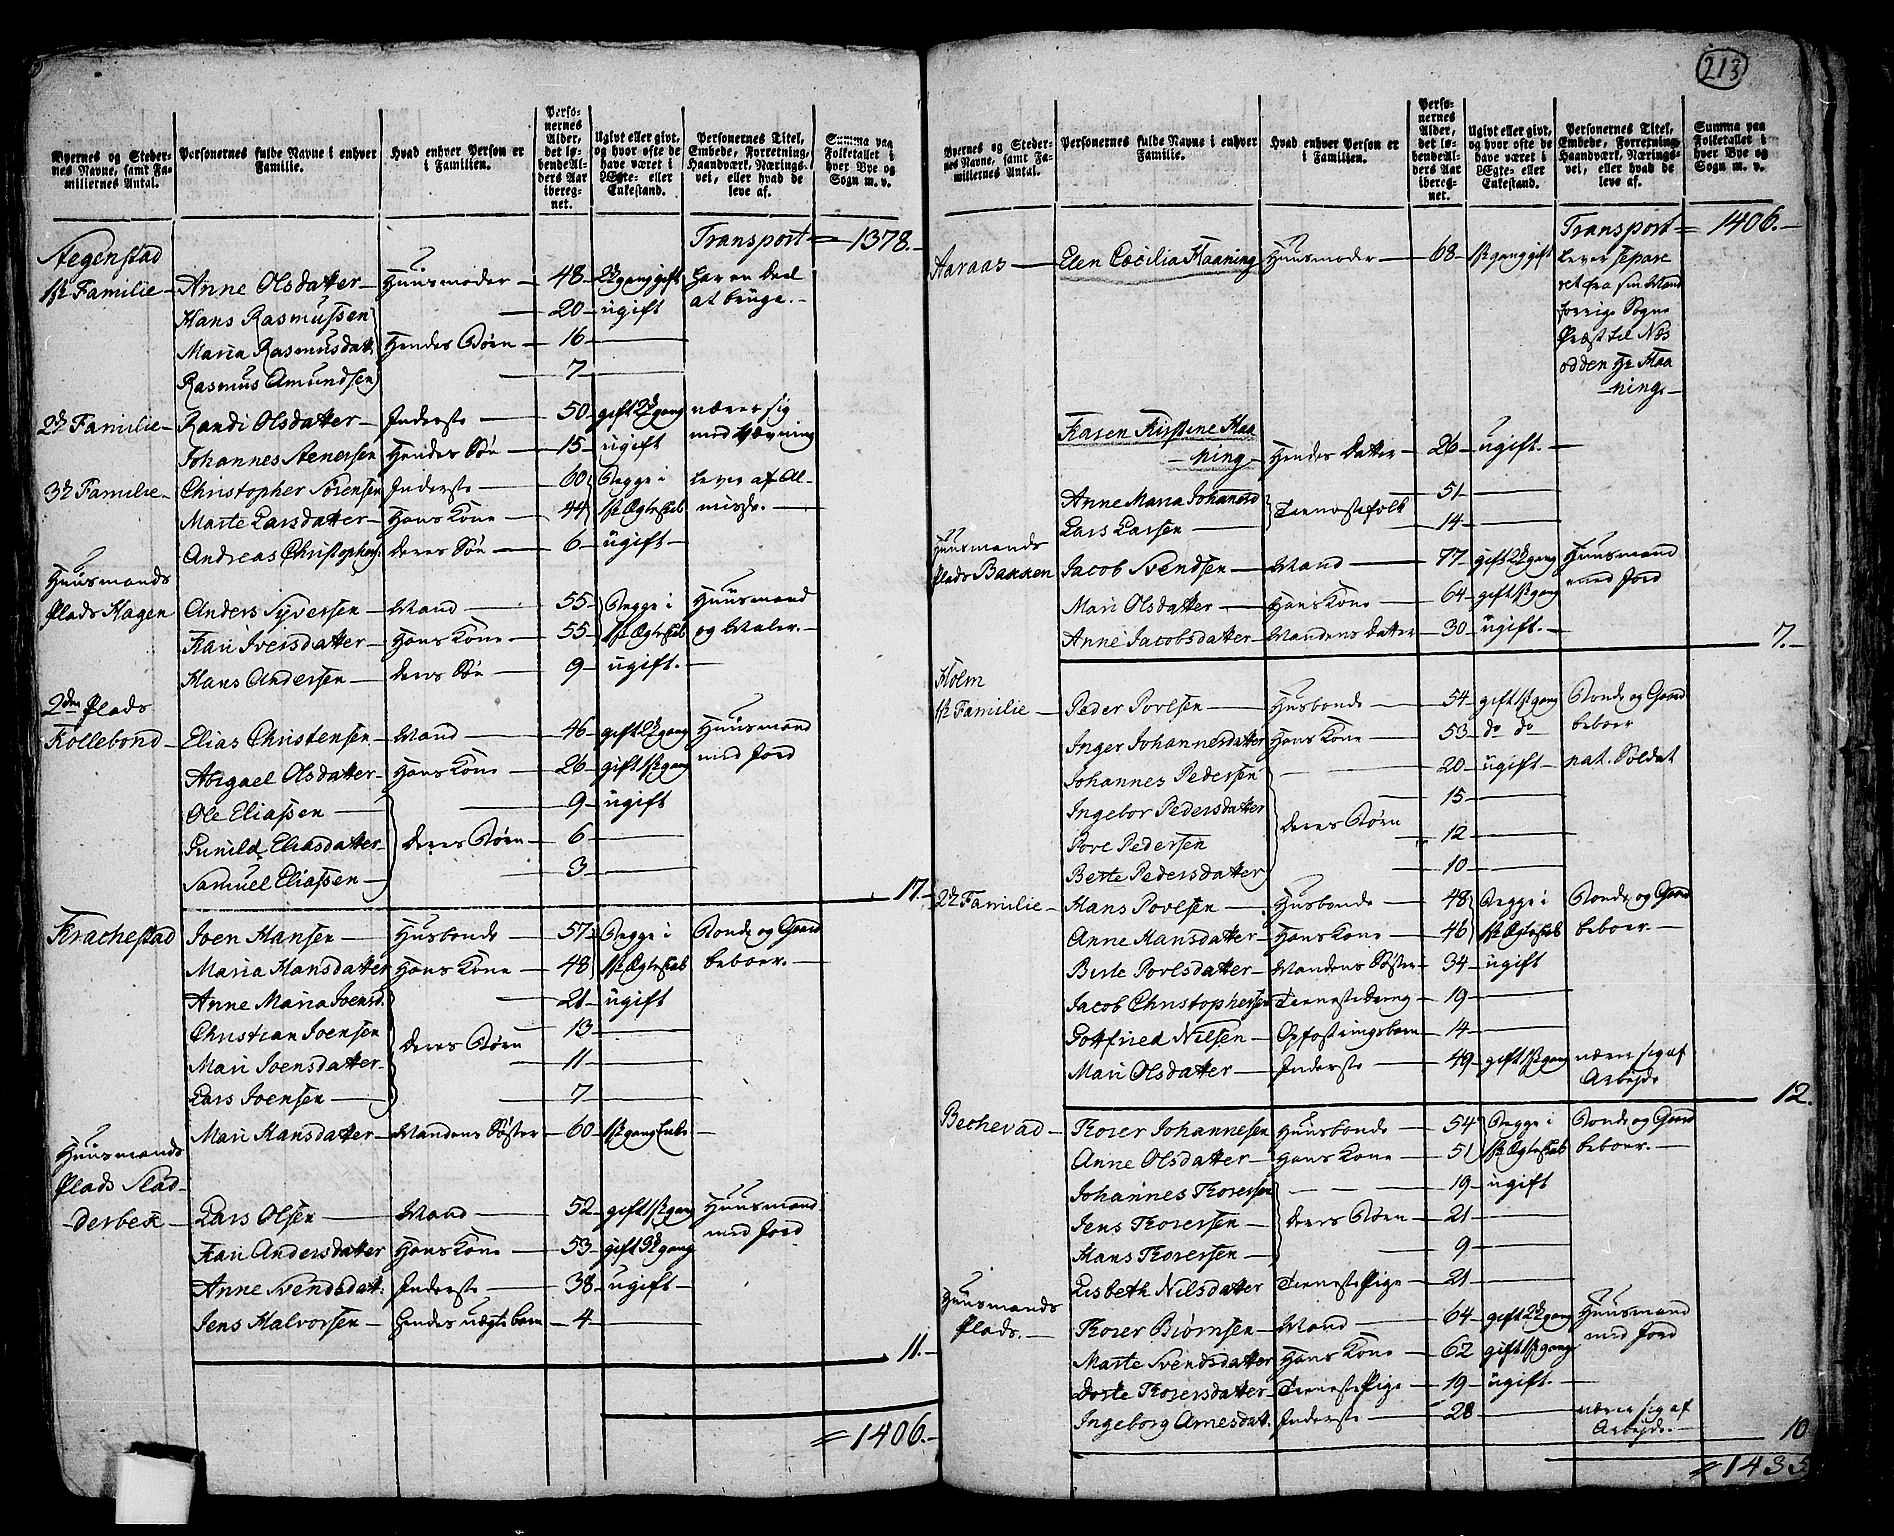 213
Byernes og Steder-
nes Navne, samt Fa-
miliernes Antal.
Personernes fulde Navne i enhver
Familie.
Hvad enhver Person er
i Familien.
Perso-
nernes
Alder,
det lø-
bende Al-
ders Aar
iberegn-
net.
Ugivt eller givt,
og hvor ofte de
have været i
Egte- eller
Enkestand.
Personernes Titel,
Embede, Forretning,
Haandværk, Nærings-
vei, eller hvad de
leve af.
Summa paa
Folketallet i
hver Bye og
Sogn m. v.
Transport = 1378.
Aegenstad
1ste Familie Anne Olsdatter Huusmoder 48 2den gang gift har en Deel
at bruge.
Hans Rasmussen 20 ugift
Maria Rasmusdatt. Hendes Børn 16
Rasmus Amundsen 7
2den Familie Randi Olsdatter Inderste 50 gift 2den gang nærer sig
med Vævning
Johannes Aenersen Hendes Søn 15 ugift
3die Familie Christopher Sørensen Inderste 60 Begge i lever af Al-
misse.
Marte Larsdatter Hans Kone 44 1ste Ægteskab
Andreas Christophers: deres Søn 6 ugift
Huusmands
Plads Hagen Anders Syversen Mand 55 Begge i Huusmand
Kari Iversdatter Hans Kone 55 1ste Ægteskab og Maler.
Hans Andersen deres Søn 9 ugift.
2den Plads
Kollebond Elias Christensen Mand 46 gift 2den gang Huusmand
med Jord
Abigael Olsdatter Hans Kone 26 gift 1ste gang
Ole Eliassen 9 ugift
Gunild Eliasdatter deres Børn 6
Samuel Eliassen 3
17.
Krachestad Joen Hansen Husbonde 57 Begge i Bonde og Gaard
beboer.
Maria Hansdatter Hans Kone 48 1ste Ægteskab
Anne Maria Joensd. 21 ugift
Christian Joensen 13
deres Børn
Mari Joensdatter 11
Lars Joensen 7
Mari Hansdatter Mandens Søster 60 1ste gang Enke
Huusmands
Plads Slad-
derbek Lars Olsen Mand 52 gift 1ste gang Huusmand
med Jord
Kari Andersdatter Hans Kone 53 gift 3die gang
Anne Svendsdatt: Inderste 38 ugift
Jens Halvorsen hendes uægte barn 4
11.
= 1406.
Byernes og Steder-
nes Navne, samt Fa-
miliernes Antal.
Personernes fulde Navne i enhver
Familie.
Hvad enhver Person er
i Familien.
Perso-
nernes
Alder,
det lø-
bende Al-
ders Aar
iberegn-
net.
Ugivt eller givt,
og hvor ofte de
have været i
Egte- eller
Enkestand.
Personernes Titel,
Embede, Forretning,
Haandværk, Nærings-
vei, eller hvad de
leve af.
Summa paa
Folketallet i
hver Bye og
Sogn m. v.
Transport = 1406.
Aaraas Elen Cæcilia Haaning Huusmoder 68 1ste gang gift lever separe
ret fra sin Mand
forrige Sogne
Præst til Nes
odden Hr Haa
ning.
Karen Kirstine Haa
ning Hendes Datter 26 ugift.
Anne Maria Johannsd 51
Tienestefolk
Lars Larsen 14
Huusmands
Plads Bakken Jacob Svendsen Mand 77 gift 2den gang Huusmand
med Jord
Mari Olsdatter Hans Kone 64 gift 1ste gang
Anne Jacobsdatter Mandens Datter 30 ugift.
7.
Holm
1ste Familie Peder Povelsen Husbonde 54 gift 1ste gang Bonde og Gaard
beboer
Inger Johannesdatter Hans Kone 53 do do
Johannes Pedersen 20 ugift nat. Soldat
Ingebor Pedersdatter 15
deres Børn
Pove Pedersen 12
Berte Pedersdatter 10
2den Familie Hans Povelsen Husbonde 48 Begge i Bonde og Gaard
Anne Hansdatter Hans Kone 46 1ste Ægteskab beboer.
Birte Povelsdatter Mandens Søster 34 ugift
Jacob Christophersen Tienestedreng 19
Gottfried Nilsen Opfostringsbarn 14
Mari Olsdatter Inderste 49 gift 1ste gang nærer sig af
Arbejde
12.
Bechevad Thorer Johannesen Huusbonde 54 Begge i Bonde og Gaard
Anne Olsdatter Hans Kone 51 1ste Ægteskab beboer.
Johannes Thorersen 19 ugift
Jens Thorersen deres Børn 21
Hans Thorersen 9
Lisbeth Nilsdatter Tieneste Pige 21
Huusmands
Plads. Thorer Biørnsen Mand 64 gift 2den gang Huusmand
med Jord
Marte Svendsdatter Hans Kone 62 gift 1ste gang
Dorte Thorersdatter Tieneste Pige 19 ugift.
Ingeborg Arnesdatt. Inderste 28 nærer sig af
Arbejde.
10
= 1435